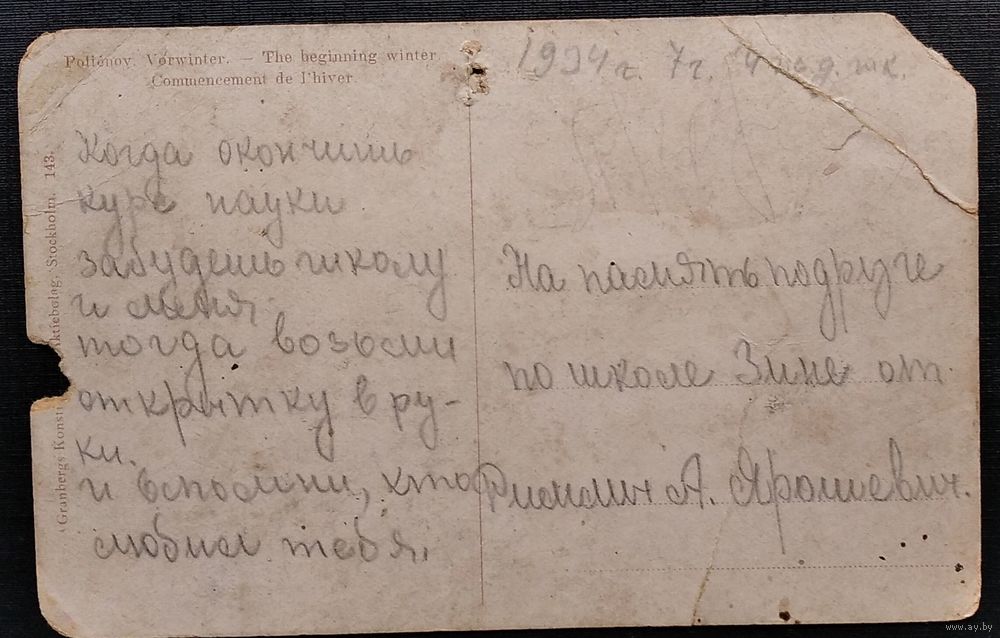 Poltenov. Vorwinter. — The beginning winter
Commencement de l'hiver.
Granbergs Konst Aktiebolag, Stockholm. 143.
1934 г. 7 г.
Когда окончишь
курс науки
забудешь школу
и меня.
тогда возьми
открытку в ру-
ки.
и вспомни, кто
любил тебя.
На память подруге
по школе Зине от
А. Ярошевич.
www.ay.by